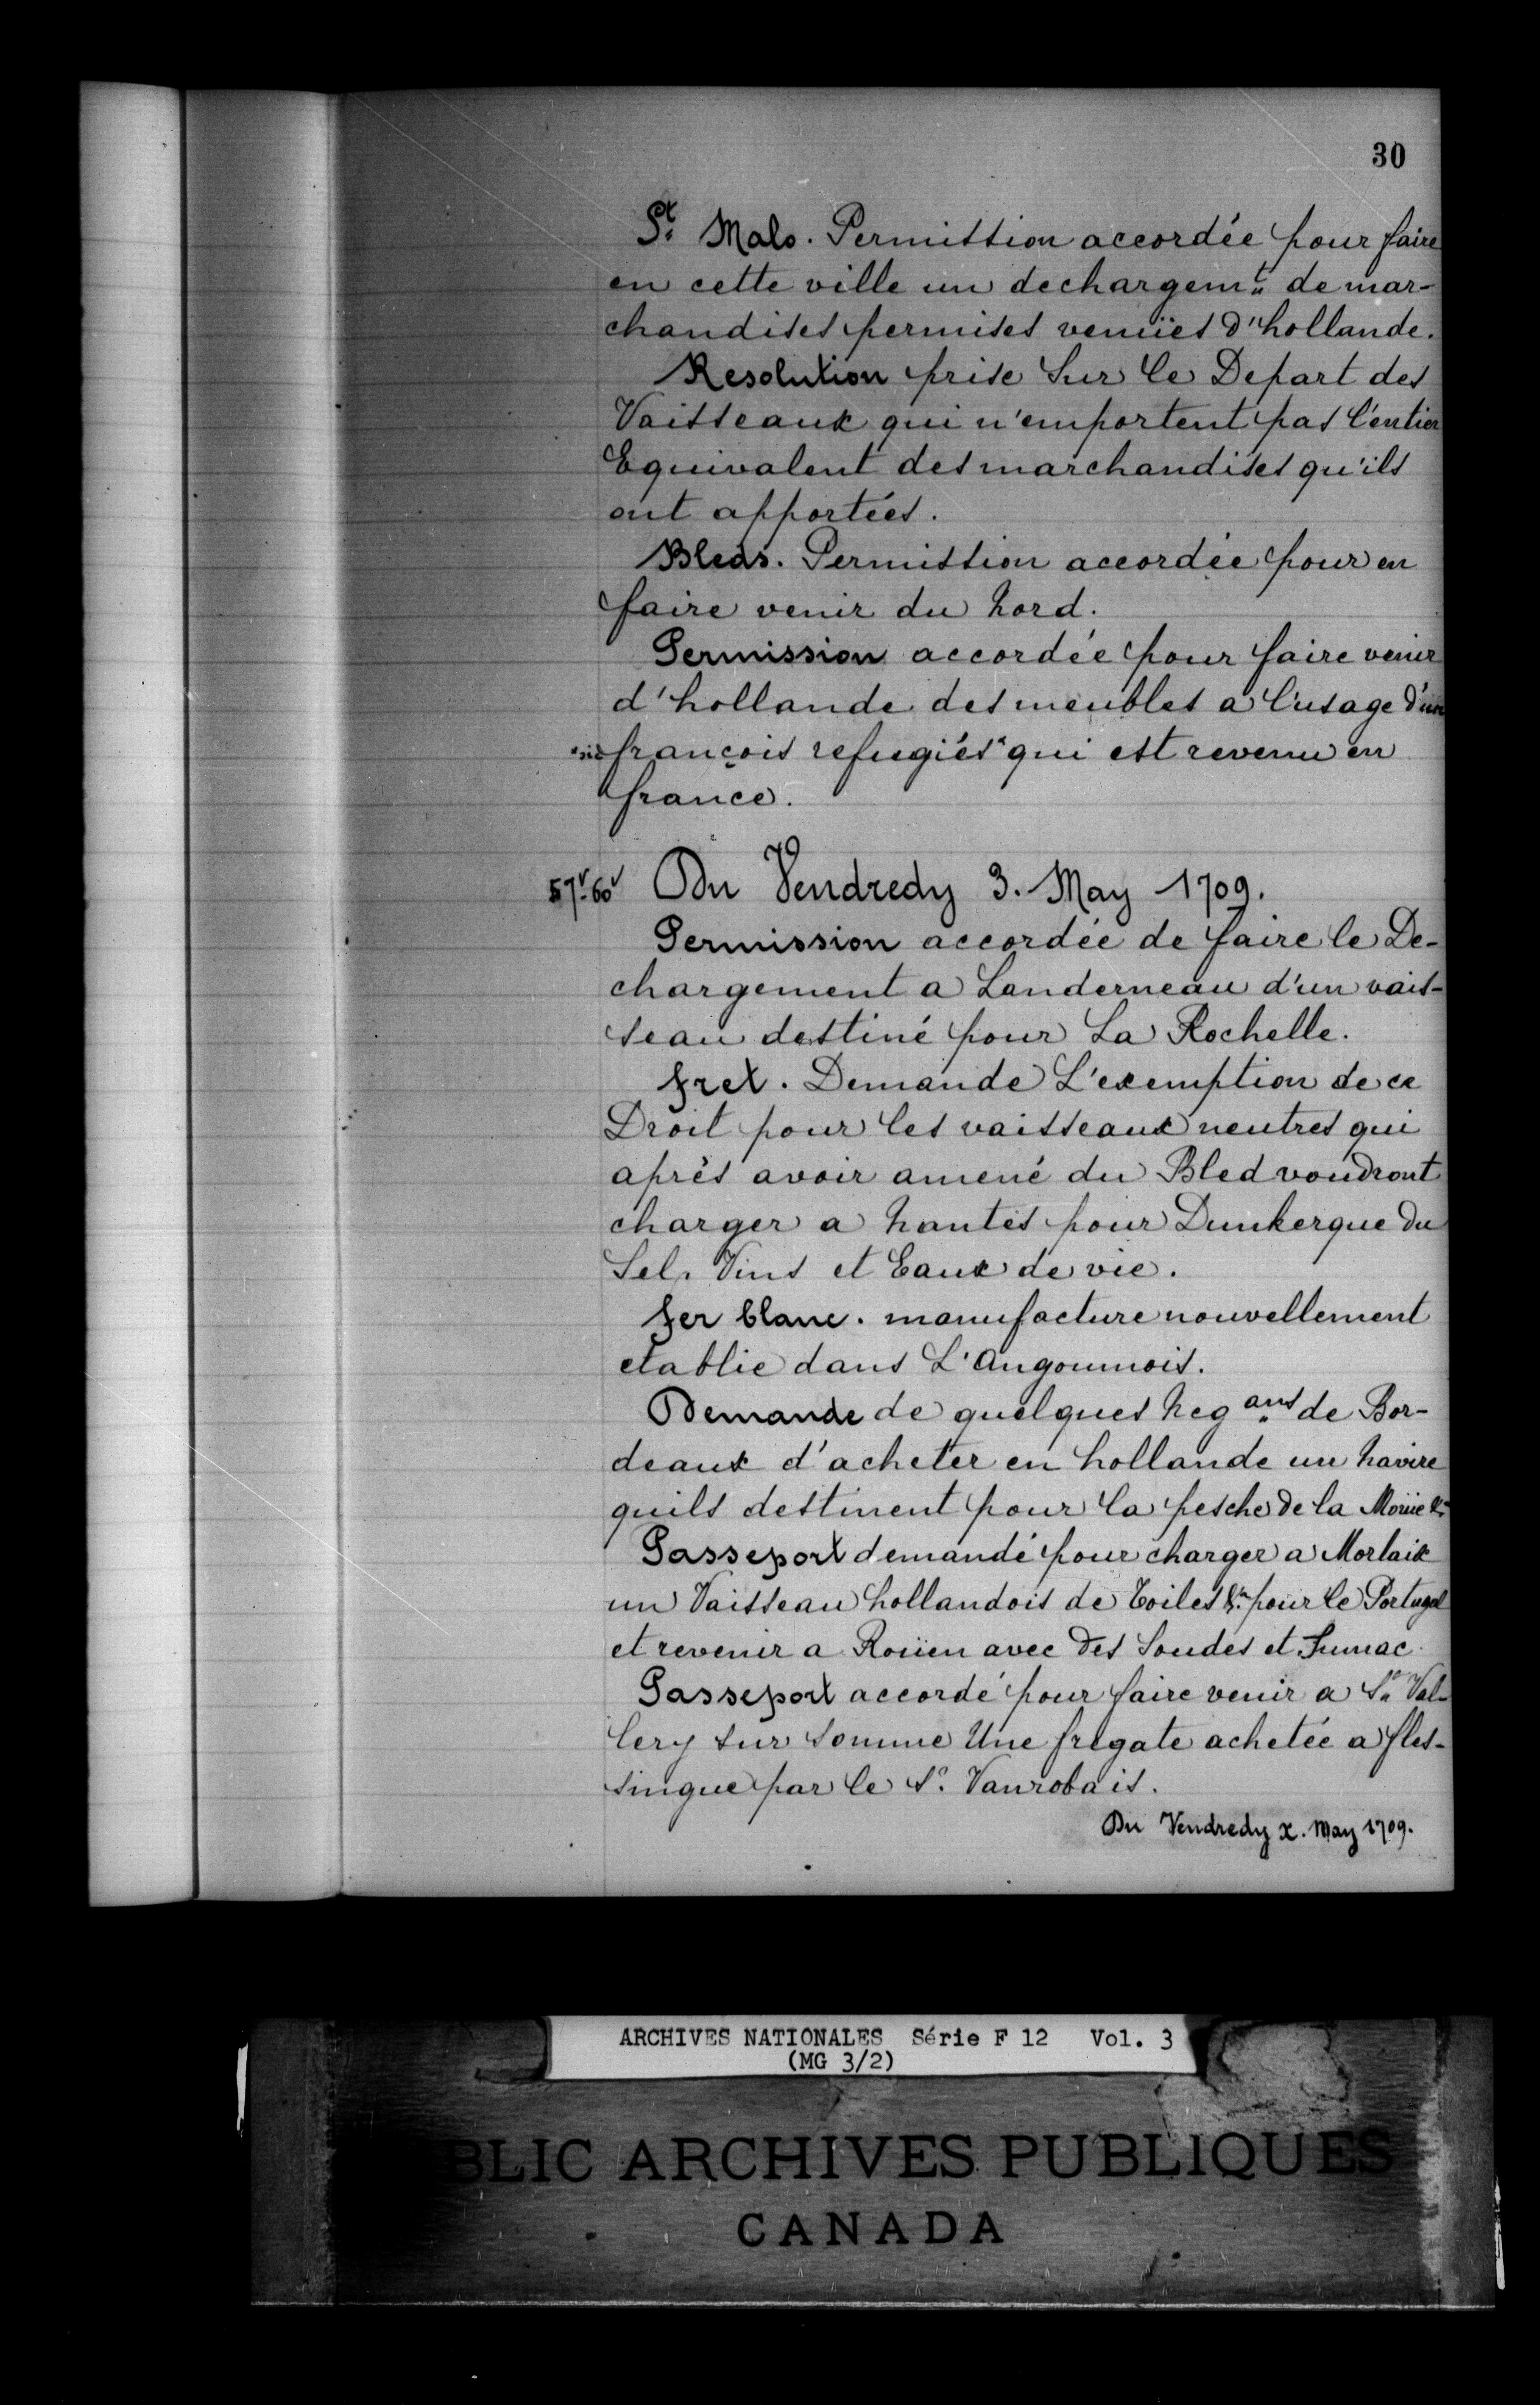 30
St. Malo. Permission accordée pour faire
en cette ville un dechargemt. de mar-
chandises permises venües d'hollande.
Resolution prise sur le Depart des
Vaisseaux qui n'emportent pas l'entier
Equivalent des marchandises qu'ils
ont apportées.
Bleds. Permission accordée pour en
faire venir du Nord.
Permission accordée pour faire venir
d'hollande des meubles a l'usage d'un
*sic françois refugiés* qui est revenu en
france.
57v-60v Du Vendredy 3. May 1709.
Permission accordée de faire le De-
chargement a Landerneau d'un vais-
seau destiné pour La Rochelle.
fret. Demande L'exemption de ce
Droit pour les vaisseaux neutres qui
après avoir amené du Bled voudront
charger a Nantes pour Dunkerque du
Sel, Vins et Eaux de vie.
fer blanc. manufacture nouvellement
etablie dans L'Angoumois.
Demande de quelques Negans de Bor-
deaux d'acheter en hollande un Navire
quils destinent pour la pesche de la Morüe &a
Passeport demandé pour charger a Morlaix
un Vaisseau hollandois de Toiles &a. pour le Portugal
et revenir a Roüen avec des Soudes et Sumac.
Passeport accordé pour faire venir a St. Val-
lery sur Somme Une fregate achetée a fles-
singue par le Sr. Vanrobais.
Du Vendredy x. May 1709.
ARCHIVES NATIONALES Série F 12 Vol. 3
(MG 3/2)
BLIC ARCHIVES PUBLIQUES
CANADA